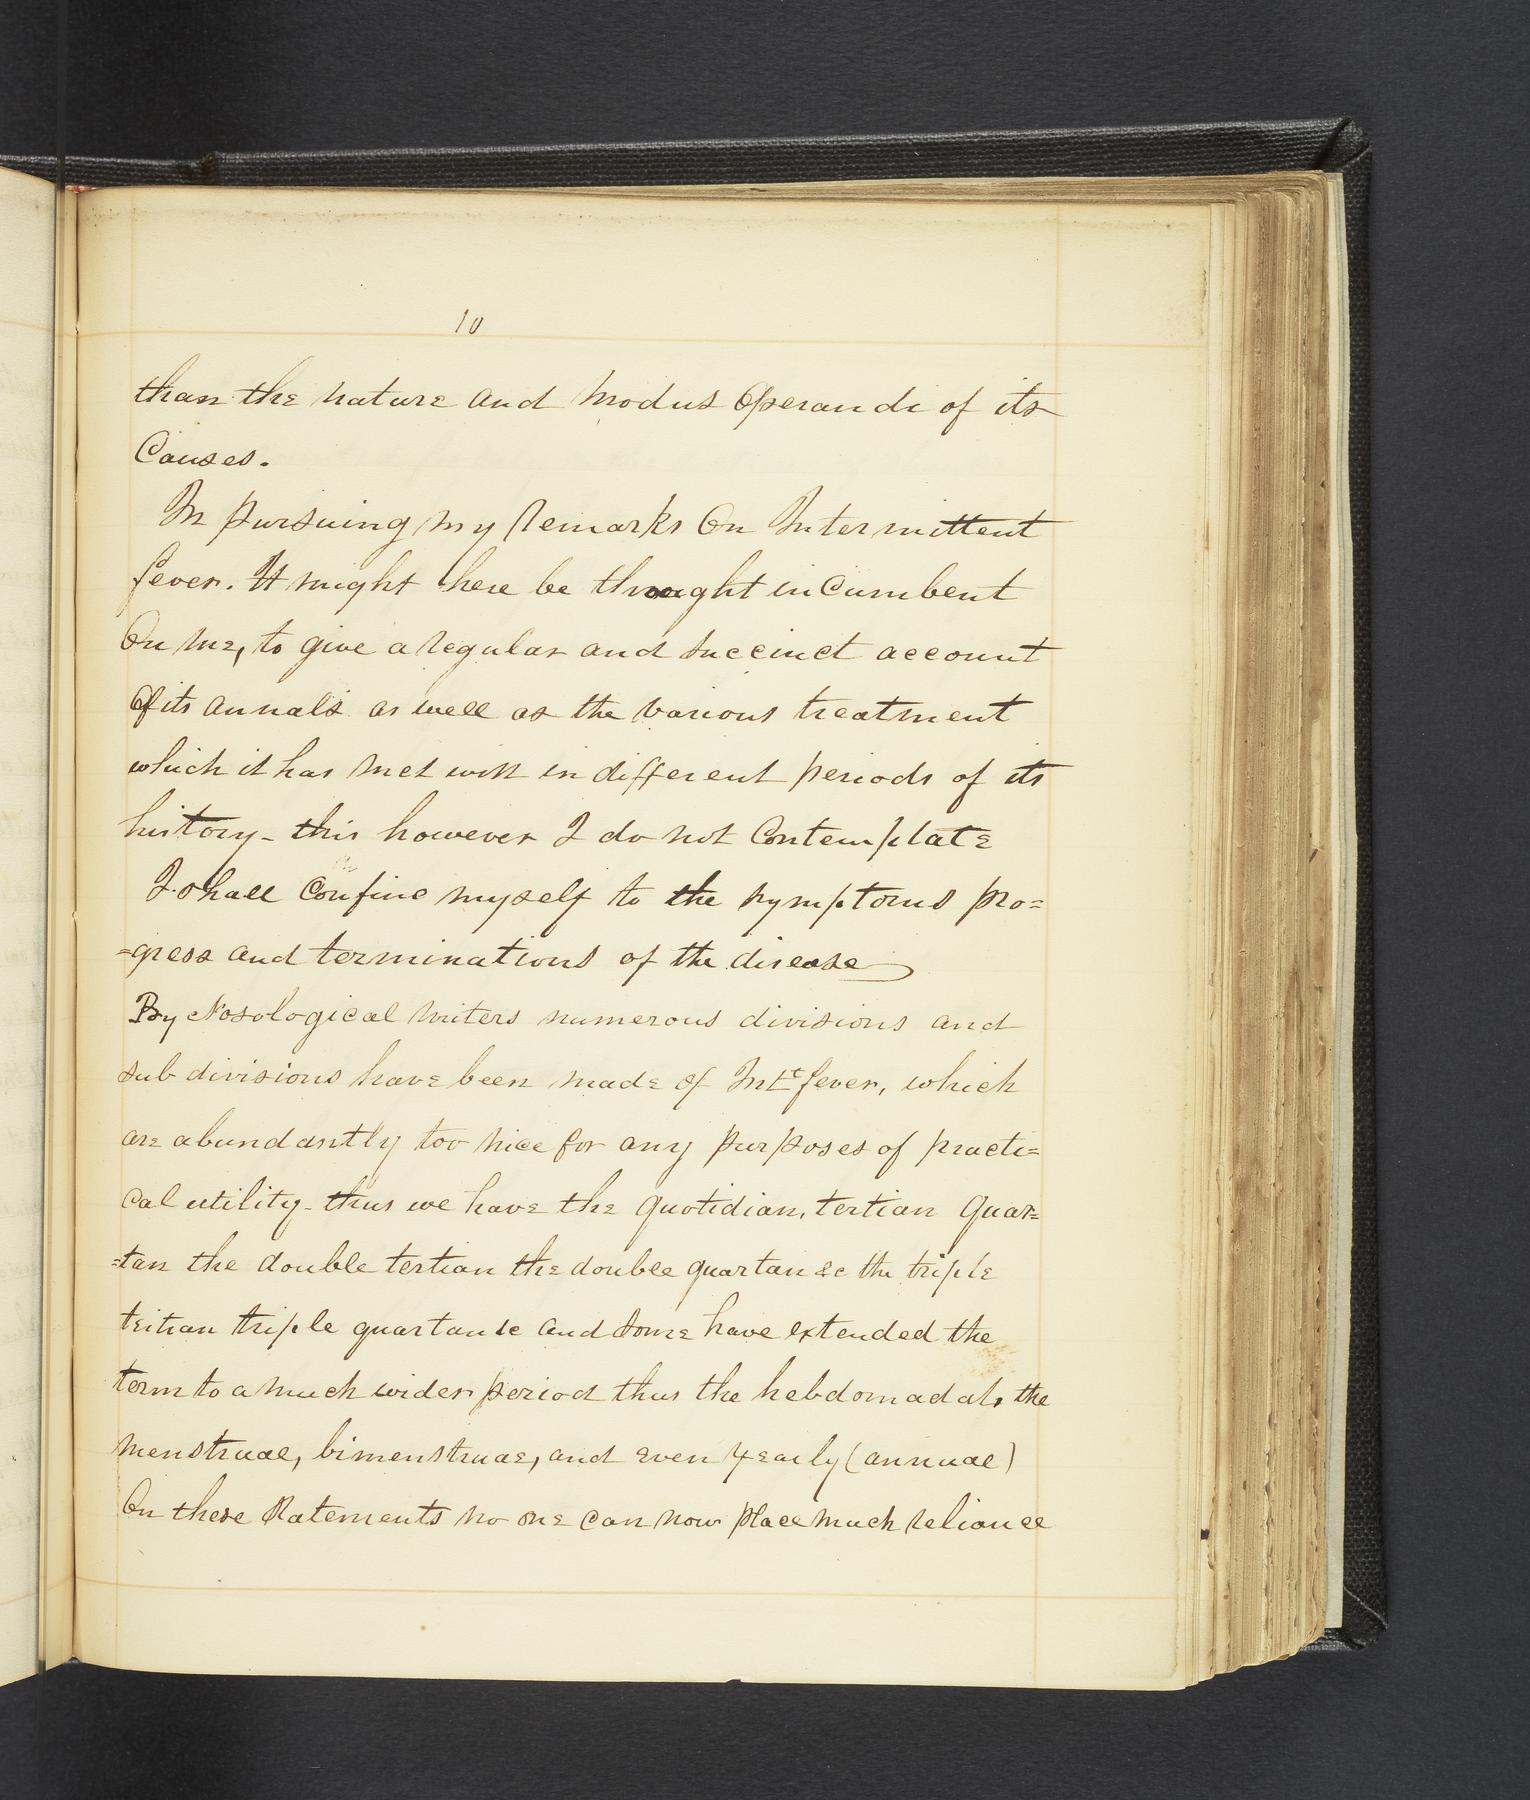 10
than the nature and modus Operandi of its
Causes.
In pursuing my remarks On Intermittent
fever. It might here be thought incumbent
On me, to give a regular and succinct account
Of its annals as well as the various treatment
which it has met with in different periods of its
history - this however I do not Contemplate
I shall Confine myself to the symptoms pro=
=gress and terminations of the disease
By Nosological writers numerous divisions and
sub divisions have been made of Intt fever, which
are abundantly too nice for any purposes of practi=
cal utility - thus we have the quotidian, tertian quar=
=tan the double tertian the double quartan &c the triple
tertian triple quartan &c and some have extended the
term to a much wider period thus the hebdomadal, the
menstrual, bimenstrual, and even yearly (annual)
On these statements no one can now place much reliance